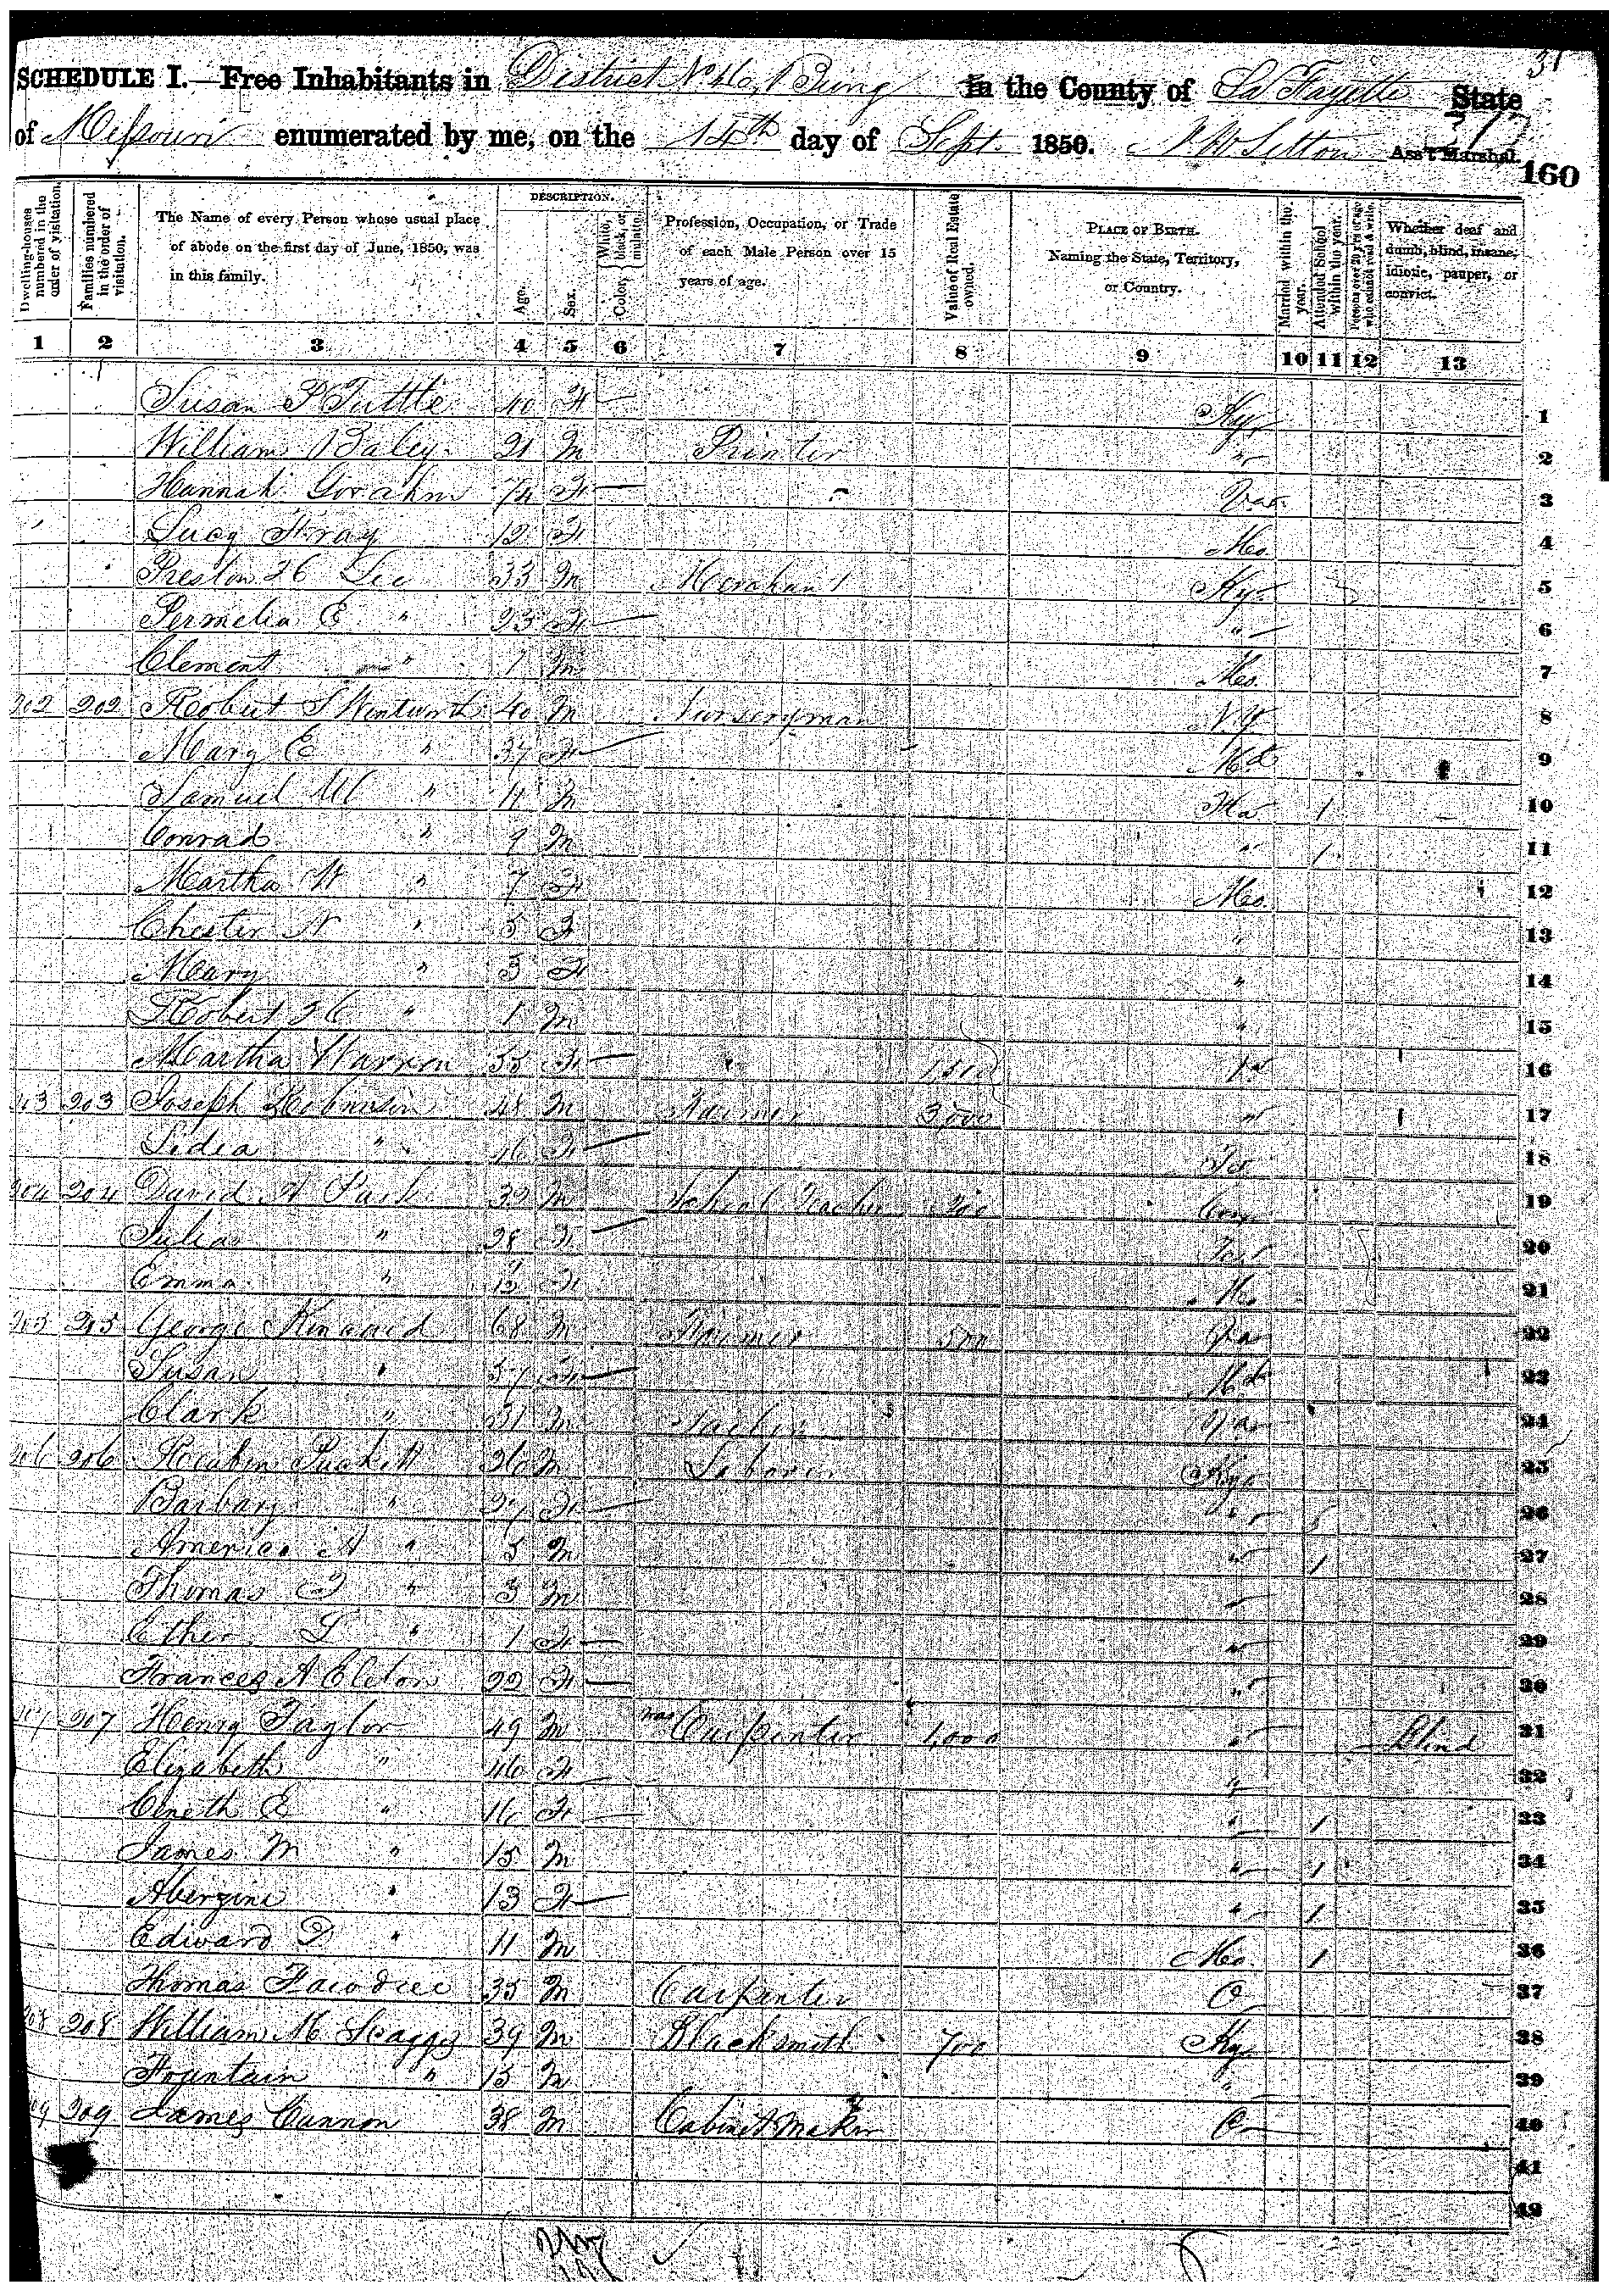 31
SCHEDULE I.—Free Inhabitants in District No. 46, in the County of La Fayette State
of Missouri enumerated by me, on the 14th day of Sept. 1850. Ass't Marshal.
37
160
Dwelling-houses numbered in the order of visitation.
Families numbered in the order of visitation.
The Name of every Person whose usual place of abode on the first day of June, 1850, was in this family.
DESCRIPTION.
Age.
Sex.
Color, White, black, or mulatto.
Profession, Occupation, or Trade of each Male Person over 15 years of age.
Value of Real Estate owned.
PLACE OF BIRTH. Naming the State, Territory, or Country.
Married within the year.
Attended School within the year.
Persons over 20 y'rs of age who cannot read & write.
Whether deaf and dumb, blind, insane, idiotic, pauper, or convict.
1 2 3 4 5 6 7 8 9 10 11 12 13
Susan P Tuttle 40 F Ky. 1
William Baley 21 M Printer " 2
Hannah 74 F Va. 3
Lucy 12 F Mo. 4
Preston Lee 33 M Merchant Ky. 5
Permelia E " 23 F " 6
Clement " 1 M Mo. 7
202 202 Robert S Wentworth 40 M Nurseryman N.Y. 8
Mary E " 37 F Md 9
Samuel M " 11 M 1 10
Conrad " 9 M " 1 11
Martha W " 7 F Mo. 12
Chester N " 5 F " 13
Mary " 3 F " 14
Robert H " 1 M " 15
Martha Warren 55 F 16
203 203 Joseph Robinson 48 M Farmer 3,000 " 17
Lidea " 46 F 18
204 204 David H 32 M School Teacher 200 19
Julia " 28 F 20
Emma " F Mo. 21
205 205 George Kincaid 68 M Farmer 500 Va 22
Susan " 57 F Md 23
Clark " 31 M Va 24
206 206 Reuben Puckett 26 M Laborer Ky. 25
Barbary " 27 F " 26
America A " 5 M " 1 27
Thomas " 3 M " 28
Ether " 1 F " 29
Frances A Eleton 22 F " 30
207 207 Henry Taylor 49 M was Carpenter 1,000 " Blind 31
Elizabeth " 46 F " 32
Ceneth E " 16 F " 1 33
James M " 15 M " 1 34
Abergine " 13 F " 1 35
Edward D " 11 M Mo. 1 36
Thomas 35 M Carpenter O 37
208 208 William M Scaggs 39 M Blacksmith 700 Ky. 38
Fountain " 13 M " 39
209 209 James Cannon 38 M Cabinet Maker O 40
41
42